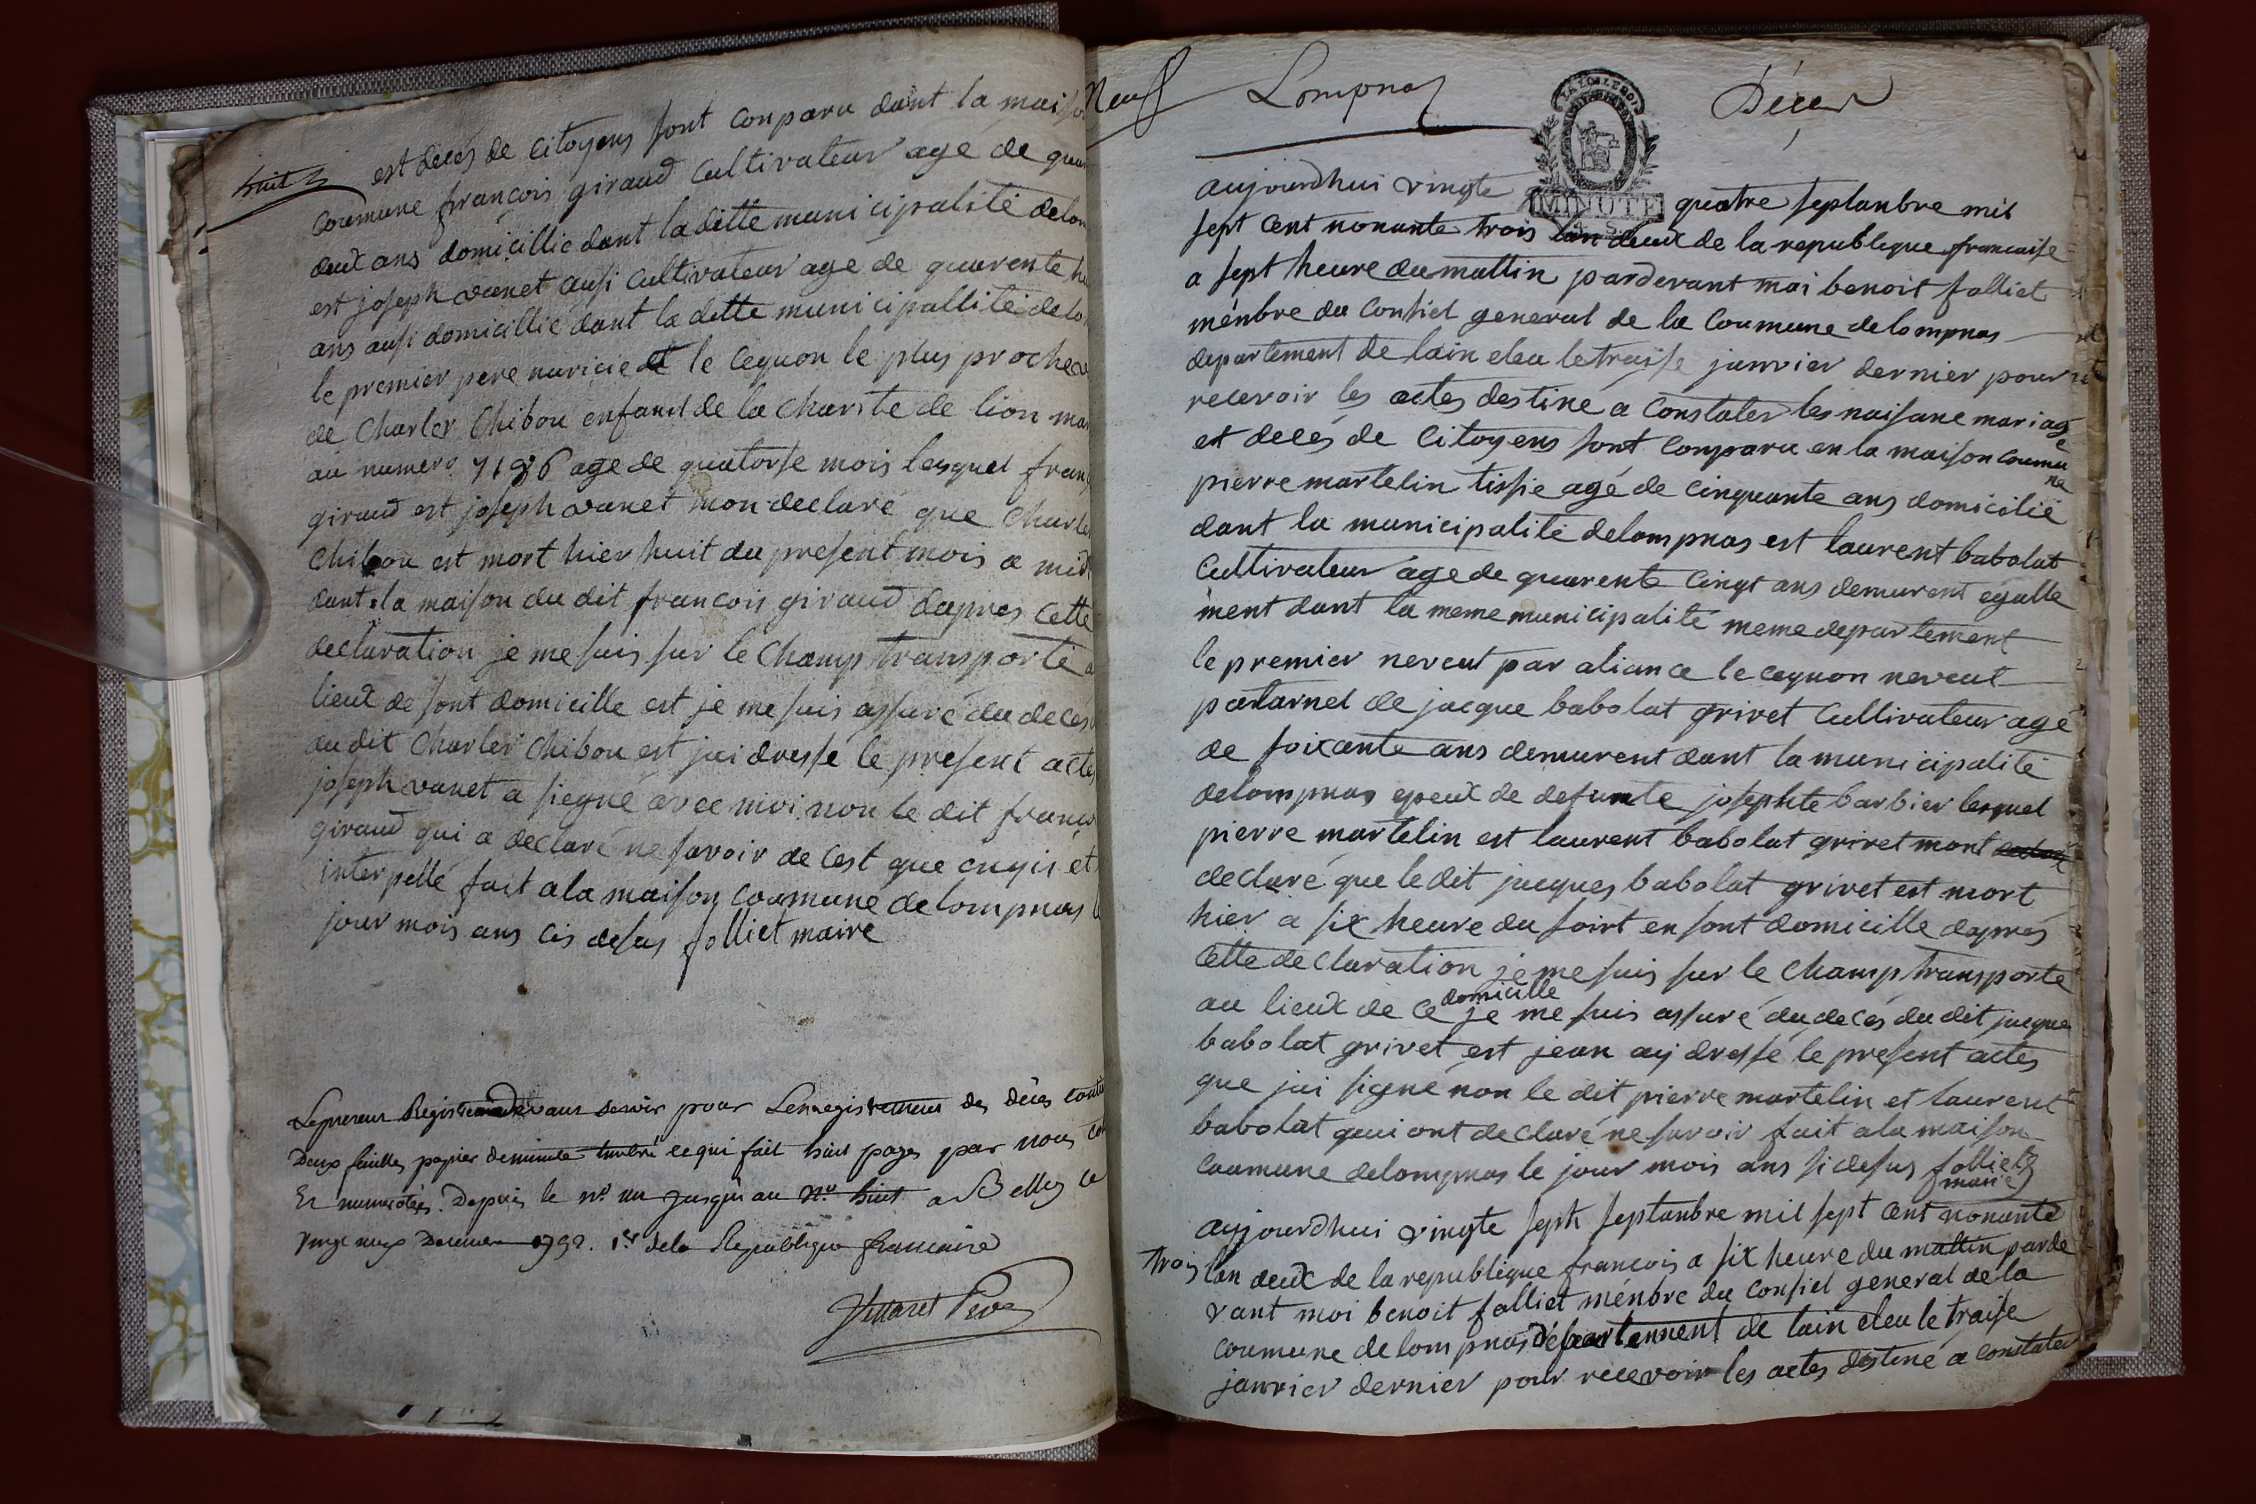 huit
est deces de citoyens sont conparu dant la maiso
coumune francois giraud cultivateur agé de quar
deux ans domicillié dant la ditte municipalité delom
est joseph vanet ausi cultivateur age de quarente hu
ans ausi domicillié dant la ditte municipallité delo
le premier pere nuricie et le cequon le plus proche v
de Charler Chibou enfand de la charite de lion mar
au numero 7186 age de quatorse mois lesquel franç
giraud est joseph vanet mon declaré que Charle
Chibou est mort hier huit du present mois a midi
dant la maison du dit francois giraud dapres cette
declaration je me suis sur le champ transporté a
lieux de sont domicille est je me suis assuré du deces
du dit Charler Chibou est jai dressé le present actes
joseph vanet a siegné avec moi non le dit franço
giraud qui a declaré ne savoir de cest que enqis et
interpellé fait a la maison coumune de lompnas l
jour mois ans cis desus folliet maire
Le present Registre devant servir pour Lenregistrement des décès contin
Deux feuilles papier deminute timbré ce qui fait huit pages par nous co
Et numerotées. Depuis le no. un jusqu'au no. huit a Belley le
Vingt neuf Decembre 1792. 1er dela Republique francaise
Neuf Lompnas Déces
LA LOI LE ROI
MINUTE
4. S.
aujourdhui vingte quatre septanbre mil
sept cent nonante trois lan deux de la republique francaise
a sept heure du mattin pardevant moi benoit folliet
ménbre du consiel general de la coumune delompnas
departement de lain eleu le traise janvier dernier pour
recevoir les actes destiné a constater les naisane mariage
est decés de citoyens sont conparu en la maison coumune
pierre martelin tissie agé de cinquante ans domicilié
dant la municipalité delompnas est laurent babolat
cultivateur age de quarente cinqt ans demurent egalle
ment dant la meme municipalité meme departement
le premier neveut par aliance le cequon neveut
patarnel de jacque babolat grivet cultivateur agé
de soixante ans demurent dant la municipalité
delompnas epeux de defunte josephte barbier lesquel
pierre martelin est laurent babolat grivet mont
declaré que le dit jacques babolat grivet est mort
hier a six heure du soirt en sont domicille dapres
cette declaration je me suis sur le champ transporte
au lieux de ce domicille je me suis assuré du decés du dit jacque
babolat grivet est jean aij dressé le present actes
que jai signé non le dit pierre martelin et laurent
babolat qui ont declaré ne savoir fait a la maison
coumune delompnas le jour mois ans si desus folliet
maire
aujourdhui vingte sept septanbre mil sept cent nonante
trois lan deux de la republique francois a six heure du mattin parde
vant moi benoit folliet ménbre du consiel general de la
coumune de lompnas département de lain eleu le traise
janvier dernier pour recevoir les actes destiné a constater